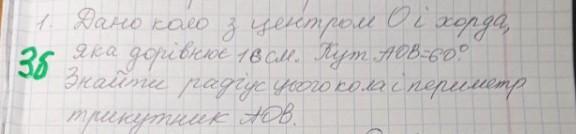 1. Дано коло з центром О і хорда,
яка дорівнює 16 см. Кут АОВ=60°
3б
Знайти радіус цього кола і периметр
трикутник АОВ.